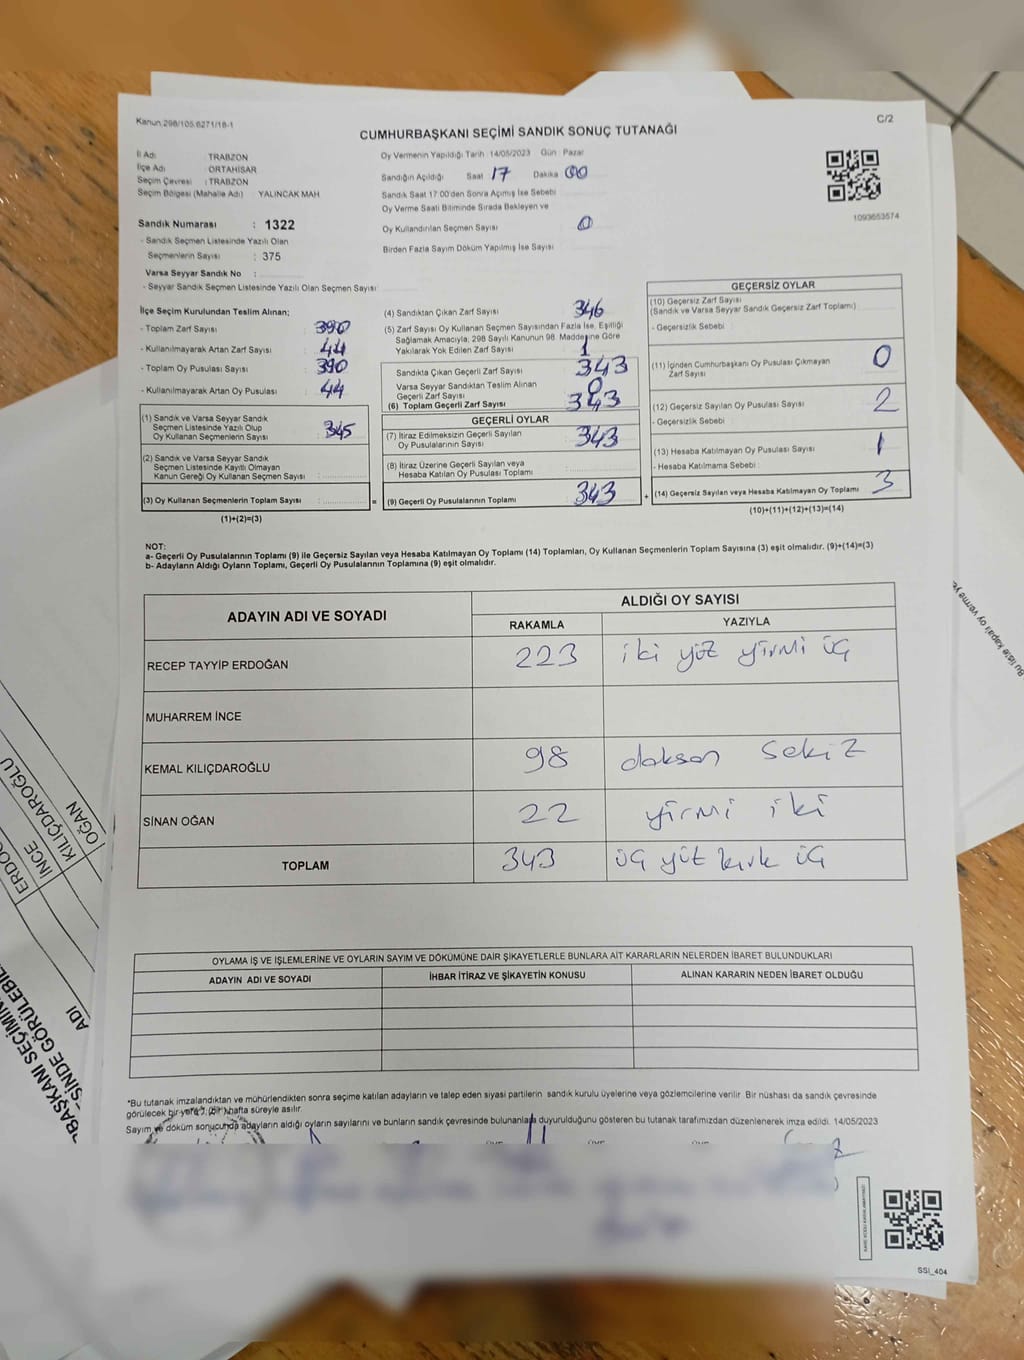 Kanun 298/105 6271/18-1
C/2
CUMHURBAŞKANI SEÇİMİ SANDIK SONUÇ TUTANAĞI
İl Adı : TRABZON
İlçe Adı : ORTAHİSAR
Seçim Çevresi : TRABZON
Seçim Bölgesi (Mahalle Adı) YALINCAK MAH
Sandık Numarası : 1322
- Sandık Seçmen Listesinde Yazılı Olan
Seçmenlerin Sayısı : 375
Varsa Seyyar Sandık No :
- Seyyar Sandık Seçmen Listesinde Yazılı Olan Seçmen Sayısı
Oy Vermenin Yapıldığı Tarih 14/05/2023 Gün Pazar
Sandığın Açıldığı Saat 17 Dakika 00
Sandık Saat 17:00'den Sonra Açılmış İse Sebebi
Oy Verme Saati Bitiminde Sırada Bekleyen ve
Oy Kullandırılan Seçmen Sayısı 0
Birden Fazla Sayım Döküm Yapılmış İse Sayısı
1093653574
İlçe Seçim Kurulundan Teslim Alınan;
- Toplam Zarf Sayısı : 390
- Kullanılmayarak Artan Zarf Sayısı : 44
- Toplam Oy Pusulası Sayısı : 390
- Kullanılmayarak Artan Oy Pusulası : 44
(1) Sandık ve Varsa Seyyar Sandık
Seçmen Listesinde Yazılı Olup
Oy Kullanan Seçmenlerin Sayısı : 345
(2) Sandık ve Varsa Seyyar Sandık
Seçmen Listesinde Kayıtlı Olmayan
Kanun Gereği Oy Kullanan Seçmen Sayısı :
(3) Oy Kullanan Seçmenlerin Toplam Sayısı :
(1)+(2)=(3)
(4) Sandıktan Çıkan Zarf Sayısı 346
(5) Zarf Sayısı Oy Kullanan Seçmen Sayısından Fazla İse, Eşitliği
Sağlamak Amacıyla, 298 Sayılı Kanunun 98. Maddesine Göre
Yakılarak Yok Edilen Zarf Sayısı 1
Sandıkta Çıkan Geçerli Zarf Sayısı 343
Varsa Seyyar Sandıktan Teslim Alınan
Geçerli Zarf Sayısı 0
(6) Toplam Geçerli Zarf Sayısı 343
GEÇERLİ OYLAR
(7) İtiraz Edilmeksizin Geçerli Sayılan
Oy Pusulalarının Sayısı 343
(8) İtiraz Üzerine Geçerli Sayılan veya
Hesaba Katılan Oy Pusulası Toplamı
= (9) Geçerli Oy Pusulalarının Toplamı 343
GEÇERSİZ OYLAR
(10) Geçersiz Zarf Sayısı
(Sandık ve Varsa Seyyar Sandık Geçersiz Zarf Toplamı)
- Geçersizlik Sebebi :
(11) İçinden Cumhurbaşkanı Oy Pusulası Çıkmayan
Zarf Sayısı 0
(12) Geçersiz Sayılan Oy Pusulası Sayısı 2
- Geçersizlik Sebebi :
(13) Hesaba Katılmayan Oy Pusulası Sayısı 1
- Hesaba Katılmama Sebebi :
+ (14) Geçersiz Sayılan veya Hesaba Katılmayan Oy Toplamı 3
(10)+(11)+(12)+(13)=(14)
NOT:
a- Geçerli Oy Pusulalarının Toplamı (9) ile Geçersiz Sayılan veya Hesaba Katılmayan Oy Toplamı (14) Toplamları, Oy Kullanan Seçmenlerin Toplam Sayısına (3) eşit olmalıdır. (9)+(14)=(3)
b- Adayların Aldığı Oyların Toplamı, Geçerli Oy Pusulalarının Toplamına (9) eşit olmalıdır.
ADAYIN ADI VE SOYADI ALDIĞI OY SAYISI
RAKAMLA YAZIYLA
RECEP TAYYİP ERDOĞAN 223 iki yüz yirmi üç
MUHARREM İNCE
KEMAL KILIÇDAROĞLU 98 doksan sekiz
SİNAN OĞAN 22 yirmi iki
TOPLAM 343 üç yüz kırk üç
OYLAMA İŞ VE İŞLEMLERİNE VE OYLARIN SAYIM VE DÖKÜMÜNE DAİR ŞİKAYETLERLE BUNLARA AİT KARARLARIN NELERDEN İBARET BULUNDUKLARI
ADAYIN ADI VE SOYADI İHBAR İTİRAZ VE ŞİKAYETİN KONUSU ALINAN KARARIN NEDEN İBARET OLDUĞU
*Bu tutanak imzalandıktan ve mühürlendikten sonra seçime katılan adayların ve talep eden siyasi partilerin sandık kurulu üyelerine veya gözlemcilerine verilir. Bir nüshası da sandık çevresinde
görülecek bir yere 1 (bir) hafta süreyle asılır.
Sayım ve döküm sonucunda adayların aldığı oyların sayılarını ve bunların sandık çevresinde bulunanlara duyurulduğunu gösteren bu tutanak tarafımızdan düzenlenerek imza edildi. 14/05/2023
SSI_404
ERDOĞ
İNCE
KILIÇDAROĞLU
OĞAN
ADI
BAŞKANI SEÇİMİN
SİNDE GÖRÜLEBİL
Bu liste kapalı oy verme ye